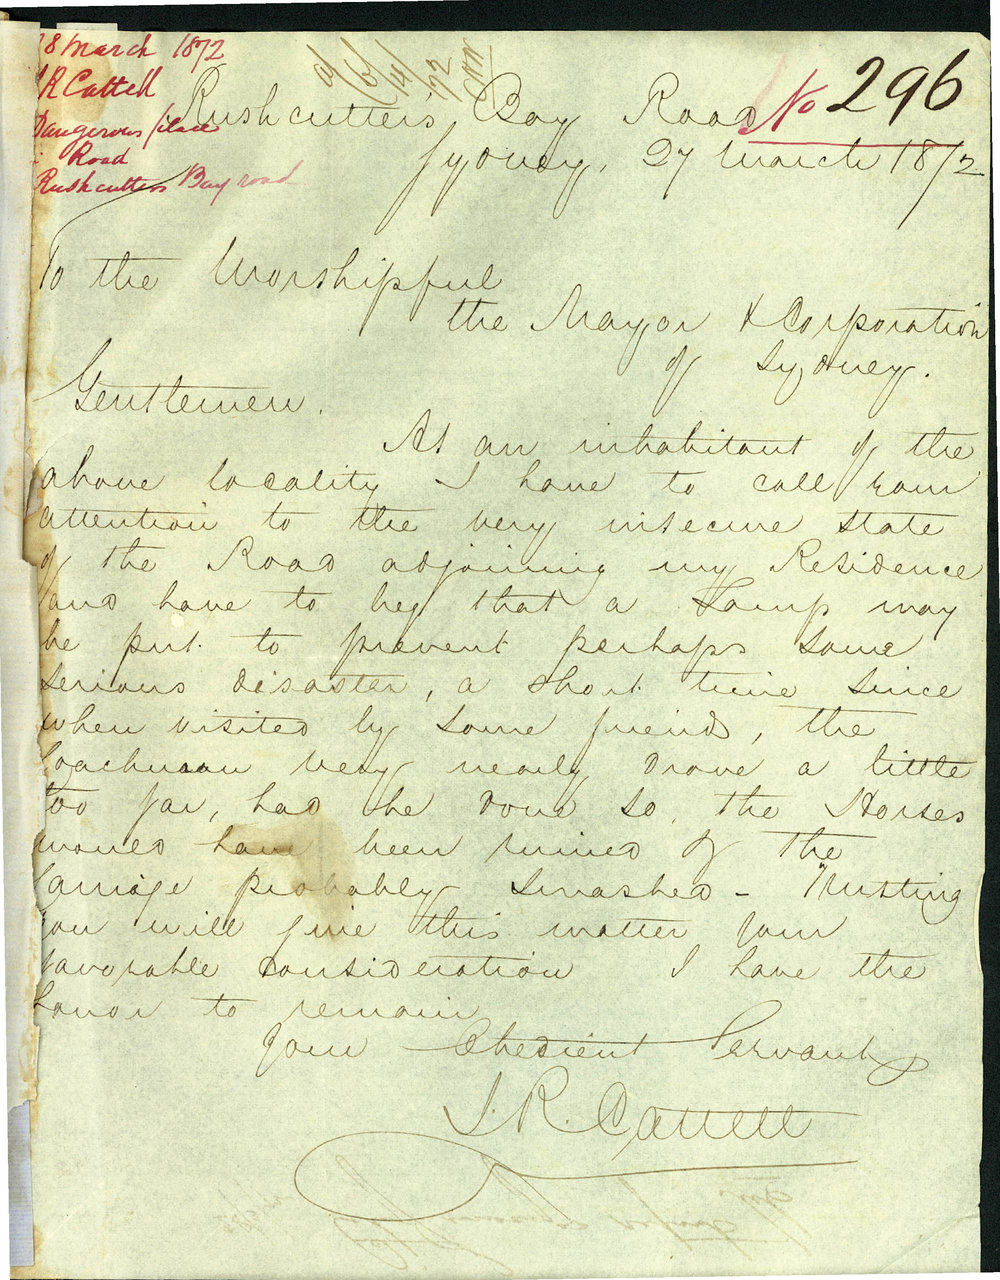 28 March 1872
J R Cattell
Dangerous place
in Road
Rushcutters Bay road
No 296
Rushcutters Bay Road
Sydney, 27 March 1872
To the Worshipful
the Mayor & Corporation
of Sydney.
Gentlemen.
As an inhabitant of the
above locality I have to call your
attention to the very insecure state
of the Road adjoining my Residence
and have to beg that a Lamp may
be put to prevent perhaps some
serious disaster, a short time since
when visited by some friends, the
Coachman very nearly drove a little
too far, had he done so, the Horses
would have been ruined & the
Carriage probably smashed - Trusting
you will give this matter your
favorable consideration I have the
honor to remain
Your Obedient Servant
J. R. Cattell